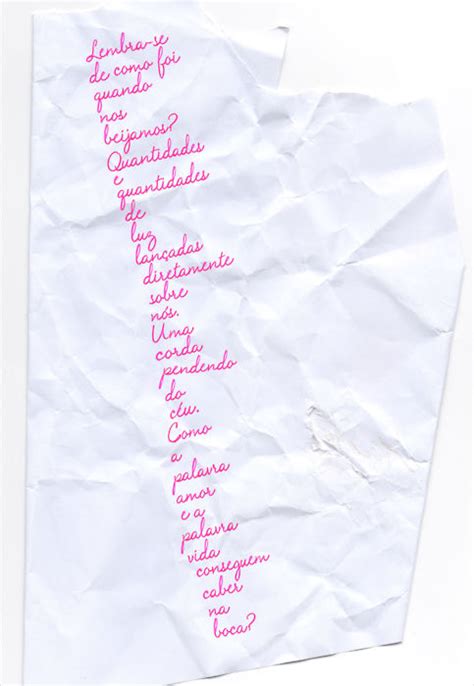 Lembra-se
de como foi
quando
nos
beijamos?
Quantidades
e
quantidades
de
luz
lançadas
diretamente
sobre
nós.
Uma
corda
pendendo
do
céu.
Como
a
palavra
amor
e a
palavra
vida
conseguem
caber
na
boca?